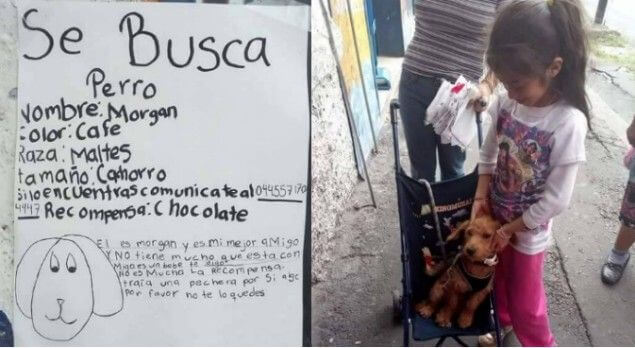 Se Busca
Perro
Nombre: Morgan
Color: Cafe
Raza: Maltes
tamaño: Cachorro
Si lo encuentras comunicate al 0445571704447
Recompensa: Chocolate
El es morgan y es mi mejor aMigo
Y NO tiene mucho que esta con
Migo es un bebe te digo
no es Mucho La Recompensa.
traia una pechera por Si a
por favor no te lo quedes
KINGMUSA